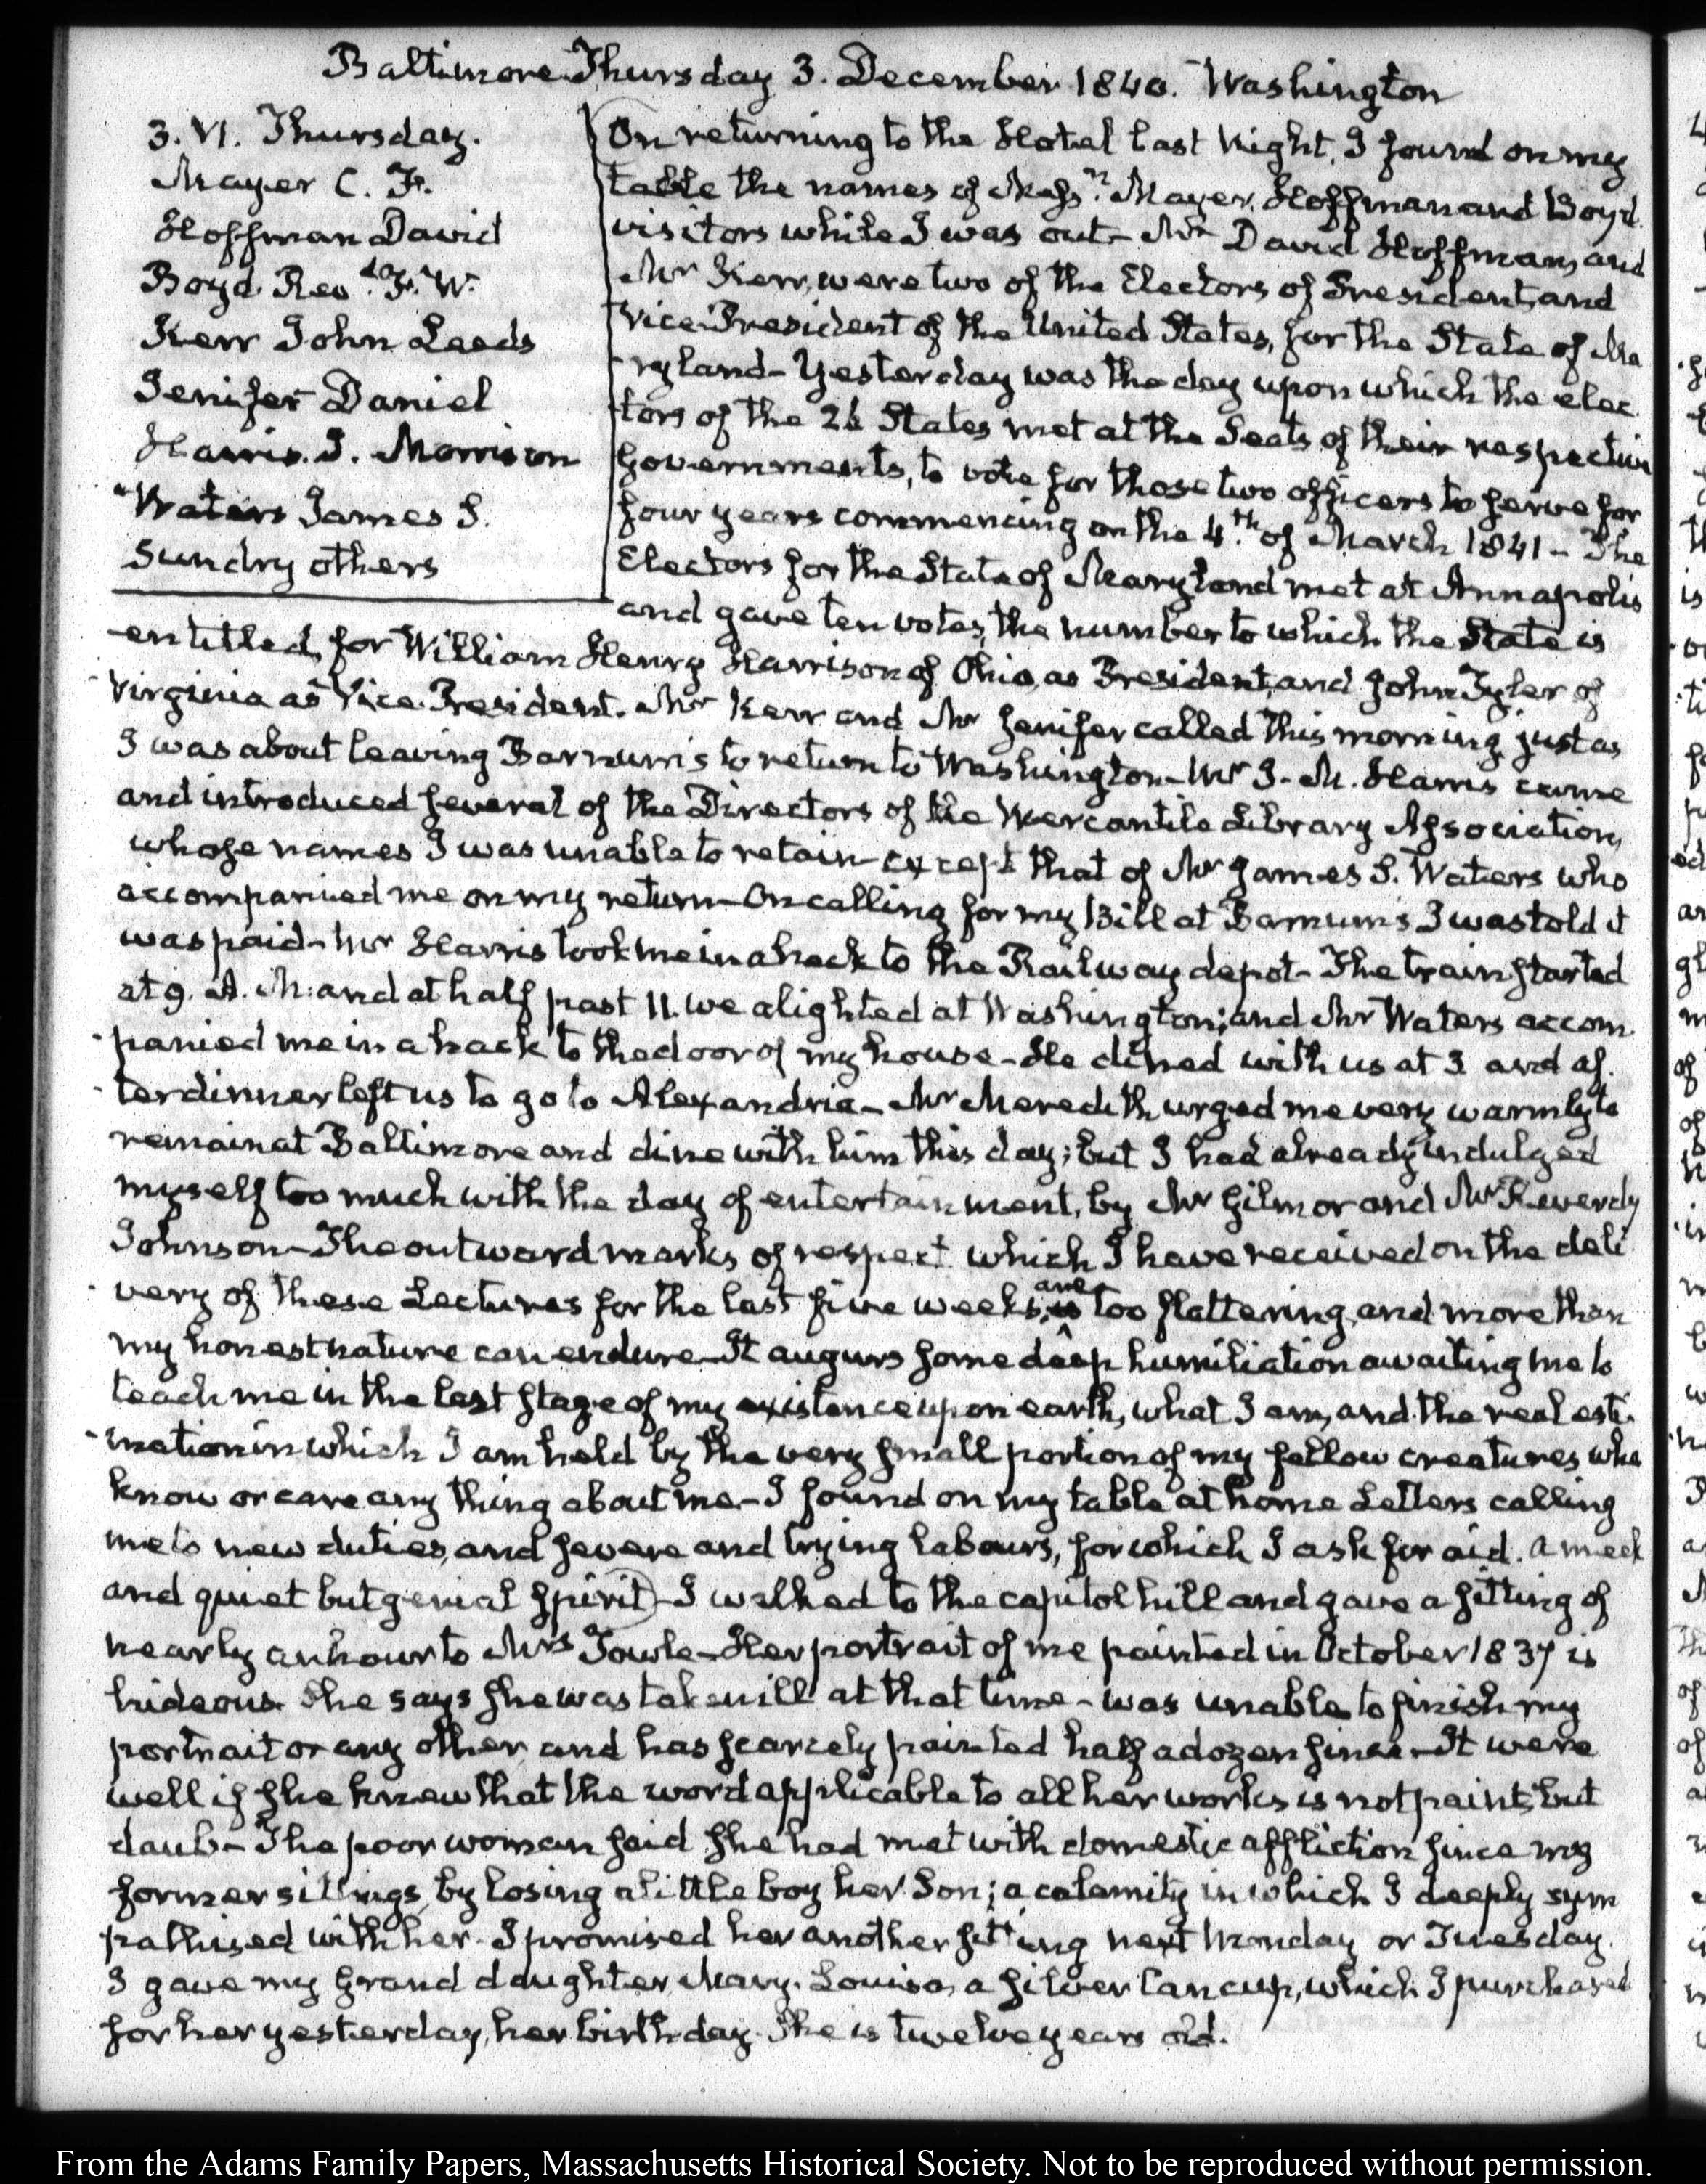 Baltimore Thursday 3. December 1840. Washington
3. VI. Thursday.
Mayer C. F.
Hoffman David
Boyd Revd. F. W.
Kerr John Leeds
Jenifer Daniel
Harris. J. Morrison
Waters James S.
Sundry others
On returning to the Hotel last Night, I found on my
table the names of Messrs. Mayer, Hoffman and Boyd
visitors while I was out- Mr David Hoffman, and
Mr Kerr, were two of the Electors of President, and
Vice-President of the United States, for the State of Ma
-ryland- Yesterday was the day upon which the elec
tors of the 26 States met at the Seats of their respective
Governments, to vote for those two officers to serve for
four years commencing on the 4th of March 1841- The
Electors for the State of Maryland met at Annapolis
and gave ten votes, the number to which the State is
-entitled, for William Henry Harrison of Ohio, as President, and John Tyler of
Virginia as Vice-President. Mr Kerr and Mr Jenifer called this morning, just as
I was about leaving Barnum's to return to Washington- Mr J. M. Harris came
and introduced several of the Directors of the Mercantile Library Association,
whose names I was unable to retain except that of Mr James S. Waters who
accompanied me on my return- On calling for my Bill at Barnum's I was told it
was paid- Mr Harris took me in a hack to the Railway depot- The train started
at 9. A. M. and at half past 11. we alighted at Washington; and Mr Waters accom-
-panied me in a hack to the door of my house- He dined with us at 3 and af-
-ter dinner left us to go to Alexandria- Mr Meredith urged me very warmly to
remain at Baltimore and dine with him this day; but I had already indulged
myself too much with the day of entertainment, by Mr Gilmor and Mr Reverdy
Johnson- The outward marks of respect which I have received on the deli
-very of these Lectures for the last five weeks, are too flattering, and more than
my honest nature can endure- It augurs some deep humiliation awaiting me to
teach me in the last stage of my existence upon earth, what I am, and the real esti-
-mation in which I am held by the very small portion of my fellow creatures who
know or care any thing about me- I found on my table at home Letters calling
me to new duties, and severe and trying labours, for which I ask for aid. a meek
and quiet but genial spirit- I walked to the capitol hill and gave a sitting of
nearly an hour to Mrs Towle- Her portrait of me painted in October 1837 is
hideous. She says she was taken ill at that time- was unable to finish my
portrait or any other, and has scarcely painted half a dozen since- It were
well if she knew that the word applicable to all her works is not paint, but
daub- The poor woman said she had met with domestic affliction since my
former sittings, by losing a little boy her Son; a calamity in which I deeply sym
pathised with her. I promised her another sitting next Monday or Tuesday.
I gave my Grand daughter, Mary-Louisa, a silver can cup, which I purchased
for her yesterday, her birth-day. She is twelve years old.
From the Adams Family Papers, Massachusetts Historical Society. Not to be reproduced without permission.